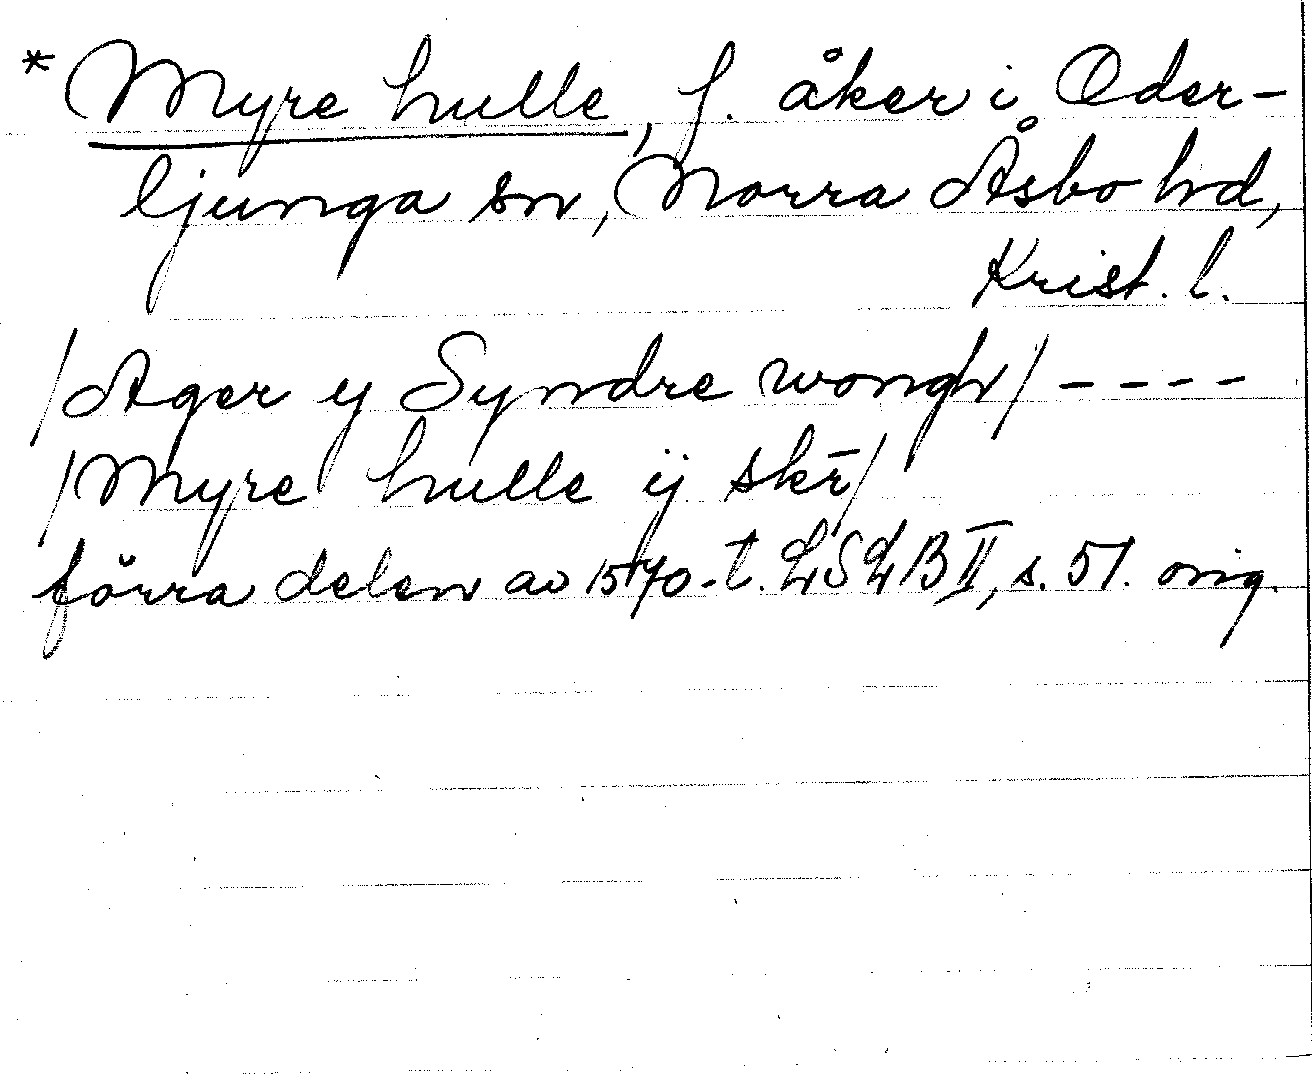 * Myre hulle, f. åker i Oder-
ljunga sn, Norra Åsbo hd,
Krist. l.
/Ager y Syndre wongh/ - - - -
/Myre hulle ij skr̄/
förra delen av 1570-t. LSLB II, s. 51. orig.